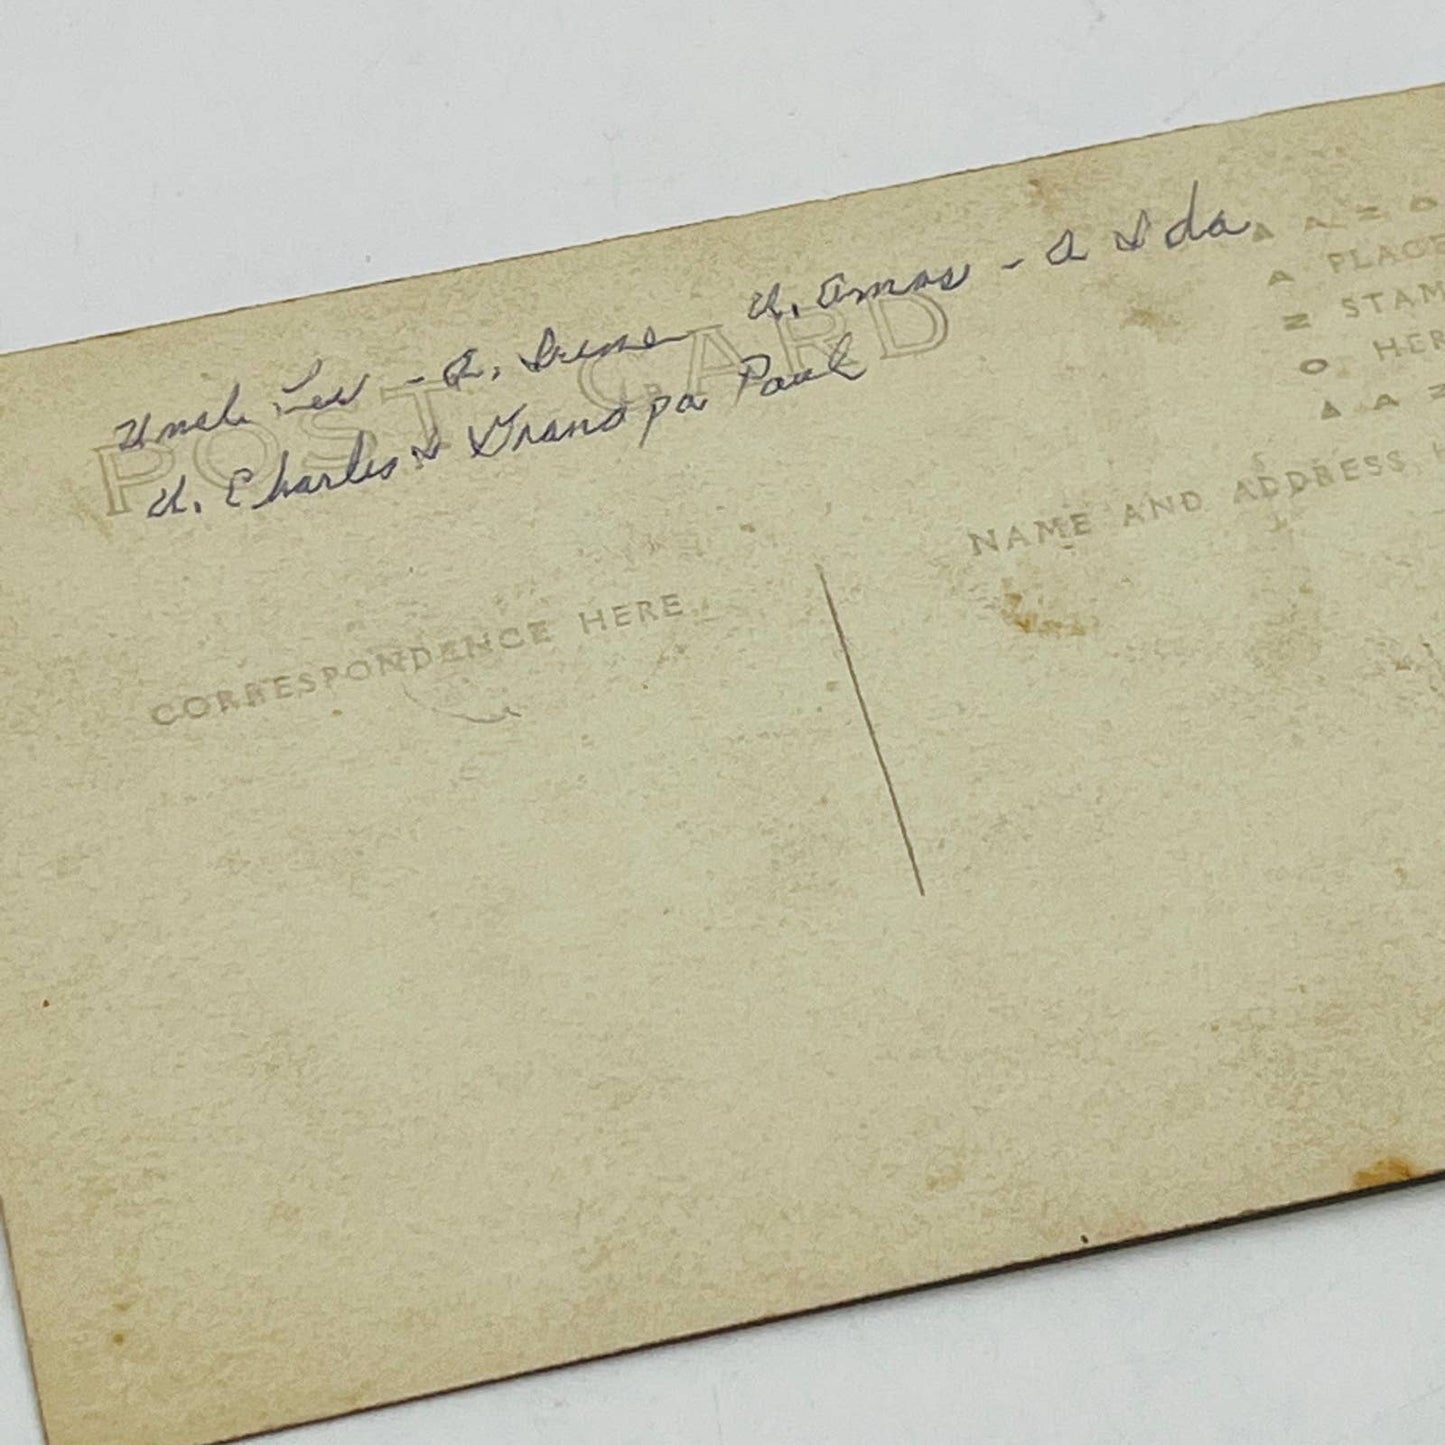 Uncle Lew - A. Irene U. Amos - A Ida
U. Charles & Grandpa Paul
POST CARD
AZO
PLACE
STAM
HER
CORRESPONDENCE HERE
NAME AND ADDRESS H